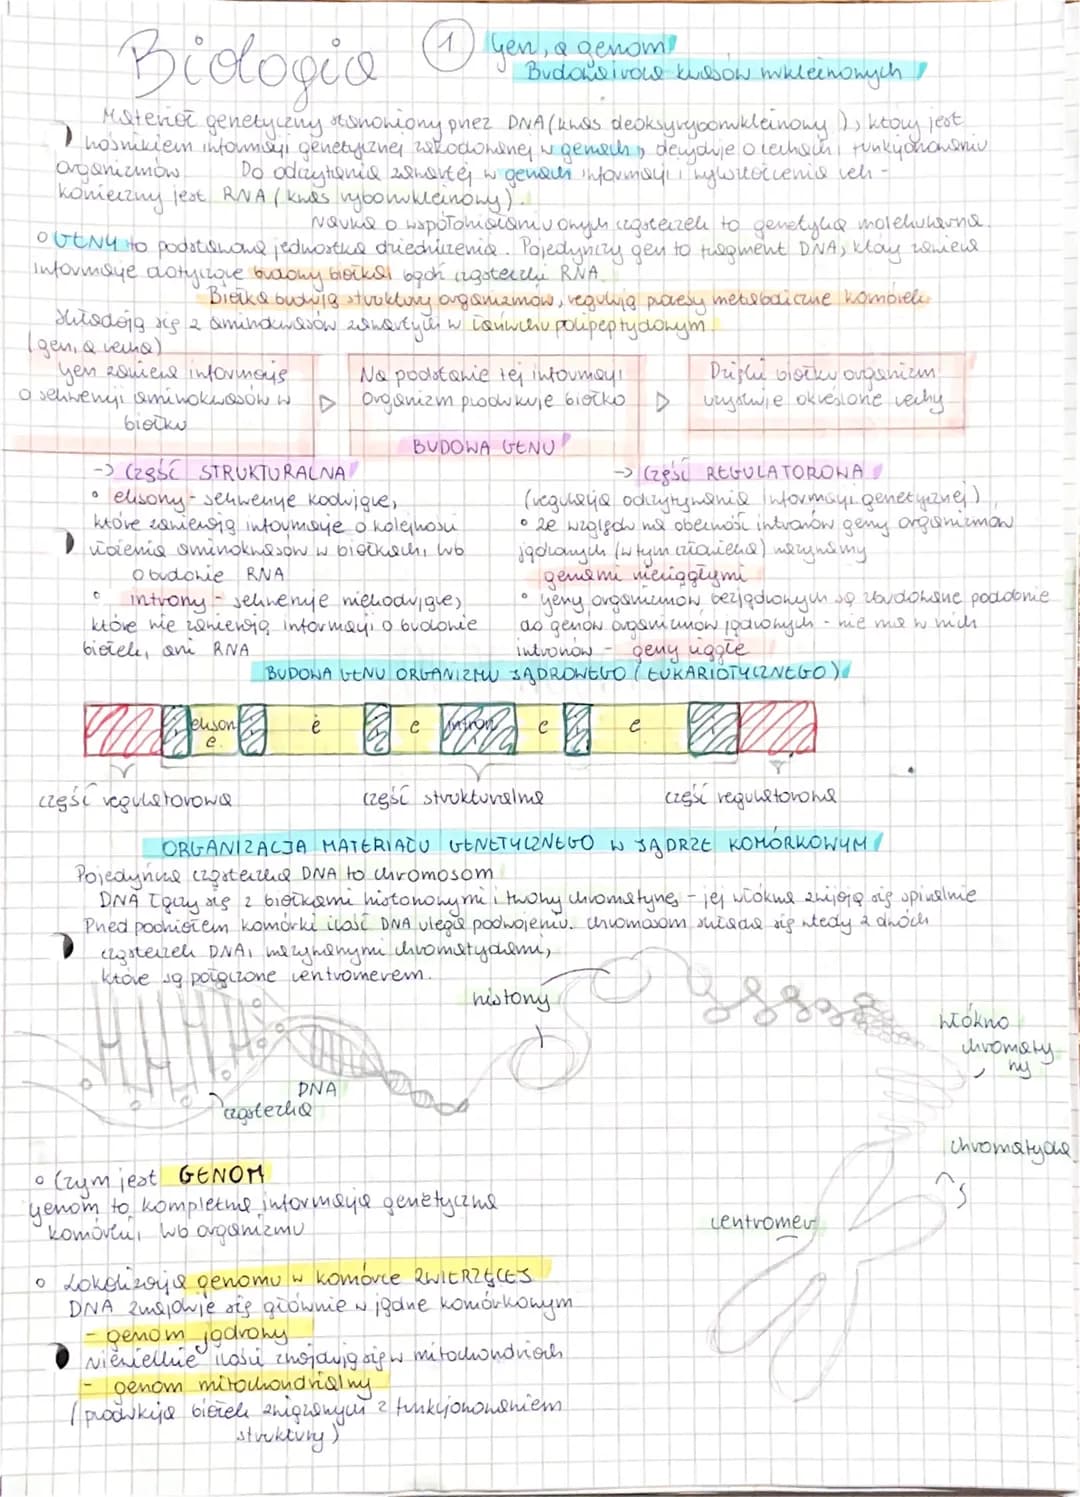 Biologia
1
gen, a genom
Budowa i rola kwasów nukleinowych
Materiał genetyczny stanowiony przez DNA (kwas deoksyrybonukleinowy), który jest
nośnikiem informacji genetycznej zakodowanej w genach, decyduje o cechach i funkcjonowaniu
organizmów. Do odczytania zawartej w genach informacji i wykształcenia cech -
konieczny jest RNA (kwas rybonukleinowy).
Nauka o współdziałaniu onych cząsteczek to genetyka molekularna.
GENY to podstawowa jednostka dziedziczenia. Pojedynczy gen to fragment DNA, który zawiera
informacje dotyczące budowy białka bądź cząsteczki RNA.
Białka budują struktury organizmów, regulują procesy metaboliczne komórek
składają się z aminokwasów zawartych w łańcuchu polipeptydowym.
(gen, a cecha)
gen zawiera informacje
o sekwencji aminokwasów w
białku
Na podstawie tej informacji
organizm produkuje białko
Dzięki białku organizm
uzyskuje określone cechy
BUDOWA GENU
-> część STRUKTURALNA
• eksony - sekwencje kodujące,
które zawierają informacje o kolejności
ułożenia aminokwasów w białkach, lub
o budowie RNA
• introny - sekwencje niekodujące,
które nie zawierają informacji o budowie
białek, ani RNA
-> część REGULATOROWA
(regulacja odczytywania informacji genetycznej)
• ze względu na obecność intronów geny organizmów
jądrowych (w tym człowieka) nazywamy
genami nieciągłymi
• geny organizmów bezjądrowych są zbudowane podobnie
do genów organizmów jądrowych - nie ma w nich
intronów - geny ciągłe
BUDOWA GENU ORGANIZMU JĄDROWEGO (EUKARIOTYCZNEGO)
ekson
e
e
e
intron
e
e
część regulatorowa
część strukturalna
część regulatorowa
ORGANIZACJA MATERIAŁU GENETYCZNEGO W JĄDRZE KOMÓRKOWYM
Pojedyncza cząsteczka DNA to chromosom
DNA łączy się z białkami histonowymi i tworzy chromatynę - jej włókna zwijają się spiralnie
Przed podziałem komórki ilość DNA ulega podwojeniu. chromosom składa się wtedy z dwóch
cząsteczek DNA, nazywanymi chromatydami,
które są połączone centromerem.
histony
włókno
chromaty
ny
DNA
cząsteczka
chromatyda
centromer
• Czym jest GENOM
genom to kompletna informacja genetyczna
komórki, lub organizmu
• Lokalizacja genomu w komórce ZWIERZĘCEJ
DNA znajduje się głównie w jądrze komórkowym
- genom jądrowy
niewielkie ilości znajdują się w mitochondriach
- genom mitochondrialny
(produkcja białek związanych z funkcjonowaniem
struktury)